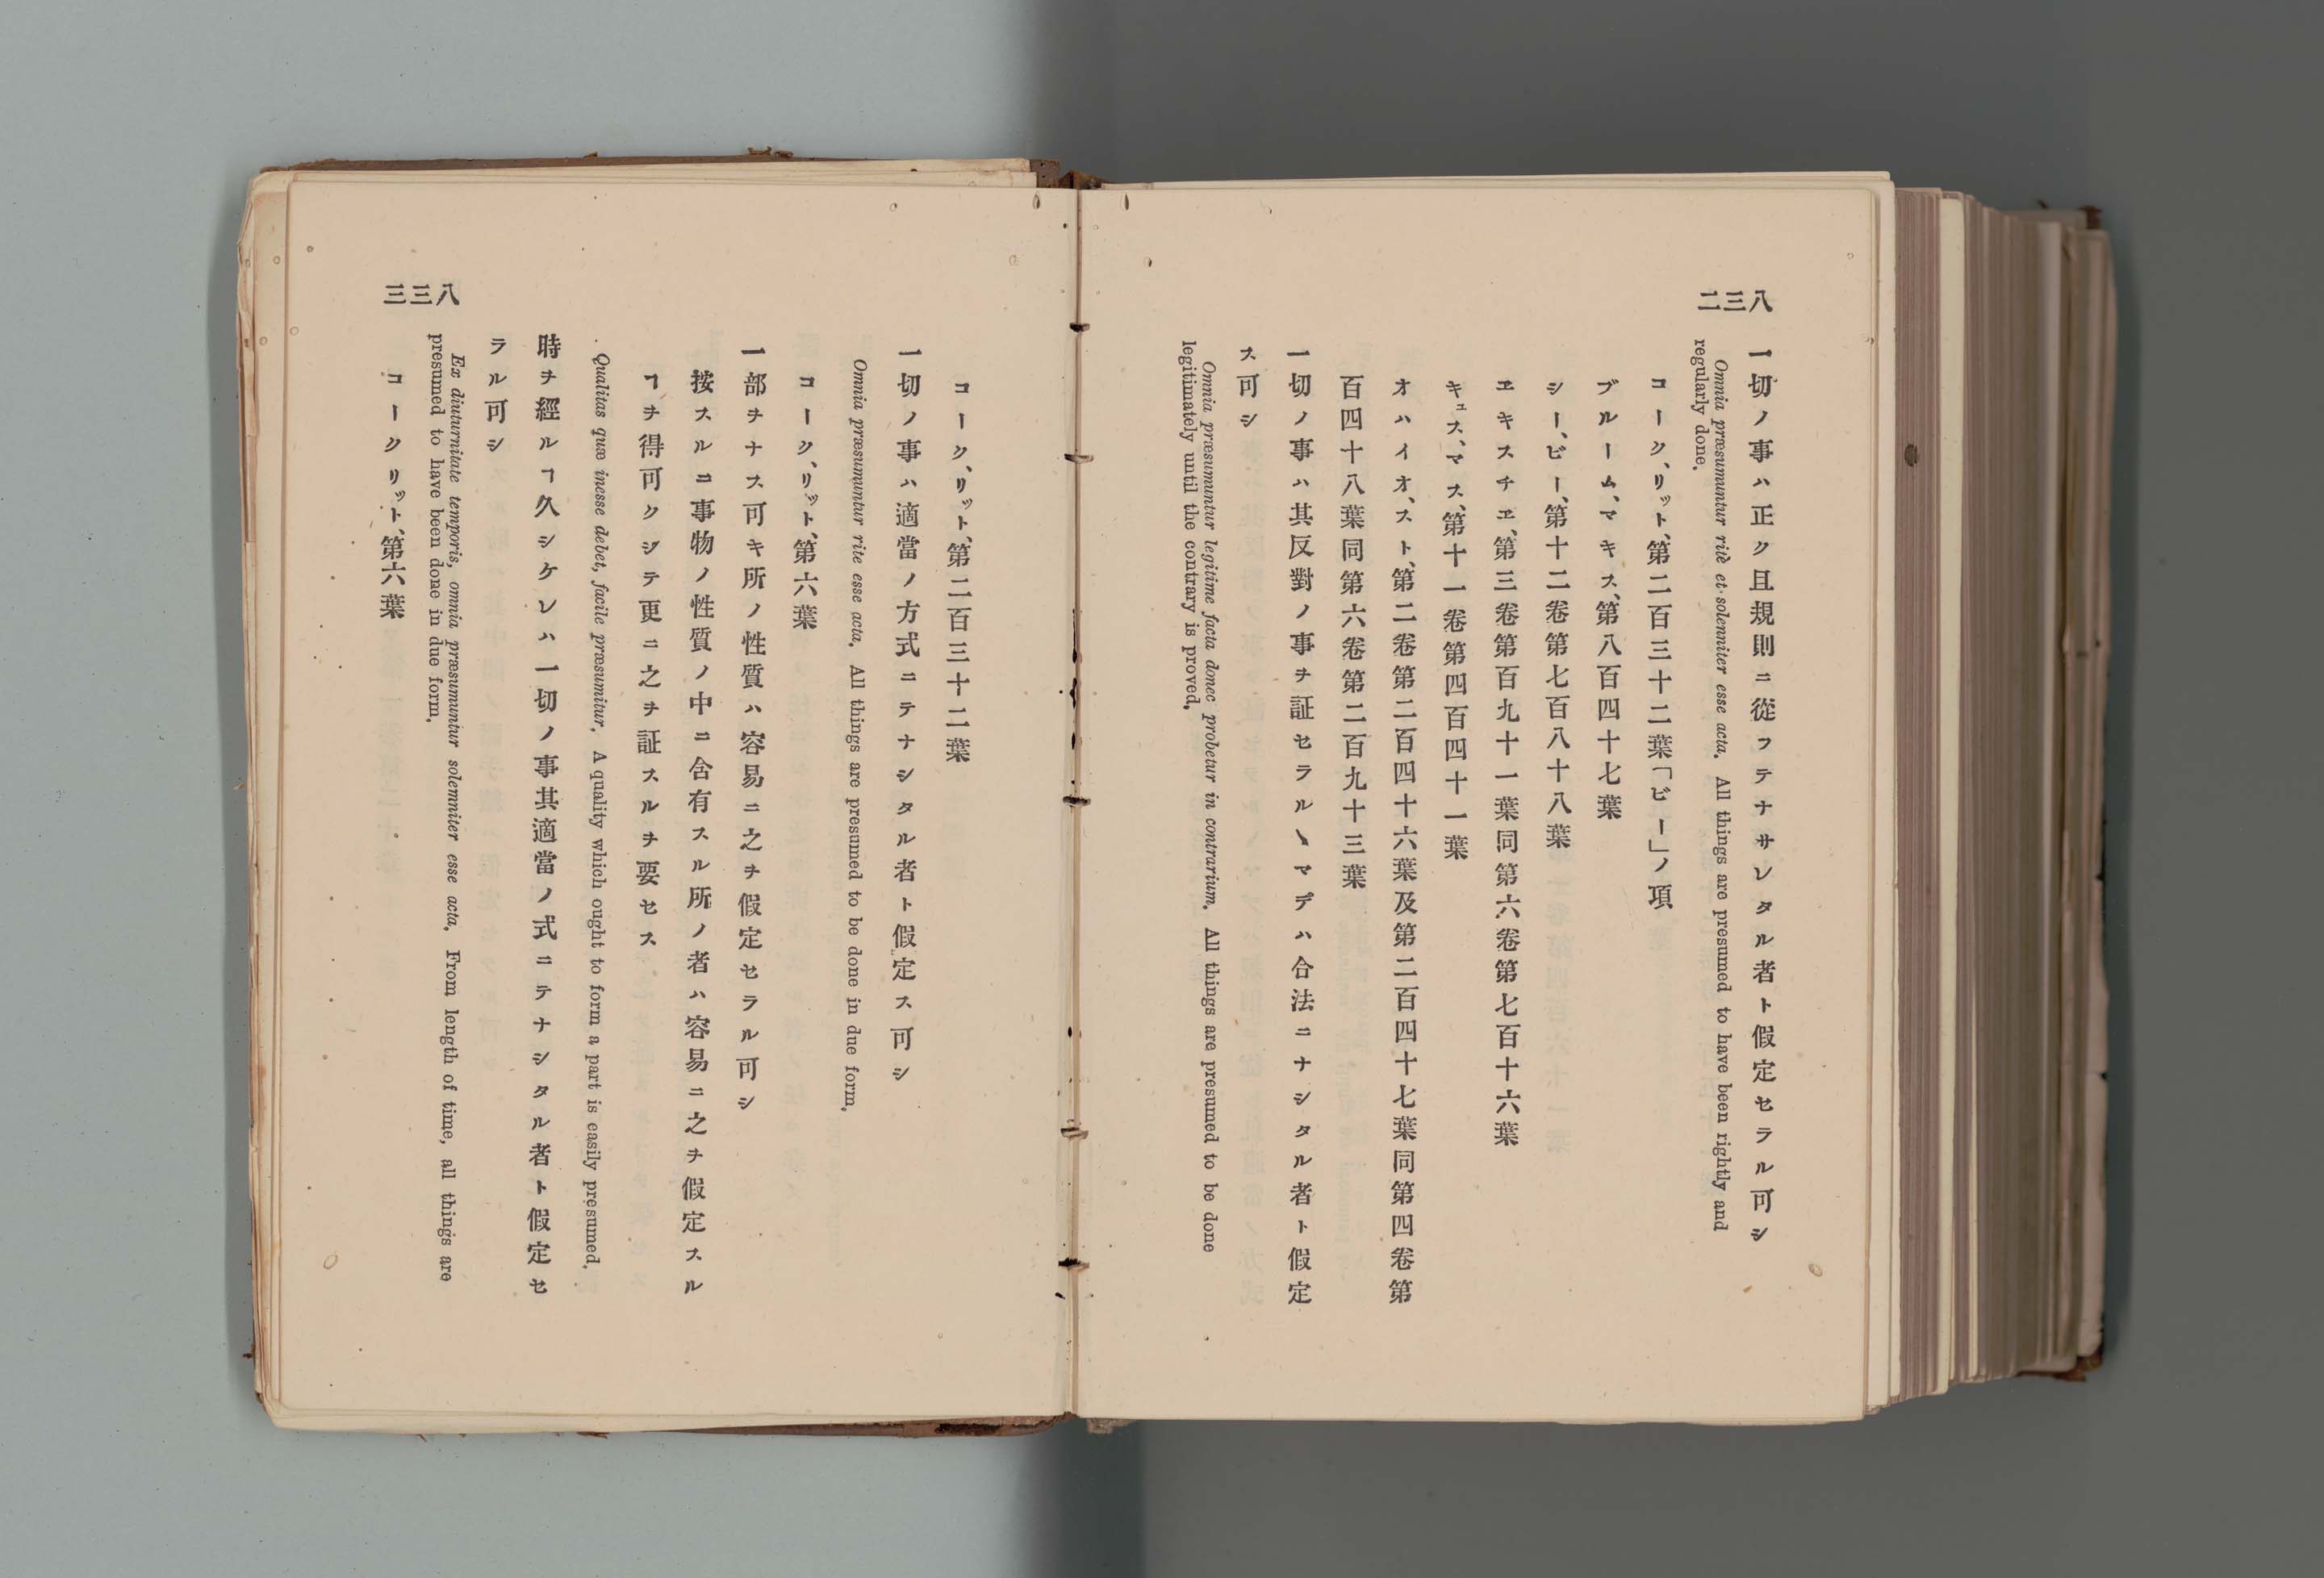 八三二
一切ノ事ハ正ク且規則ニ從フテナサレタル者ト假定セラル可シ
Omnia præsumuntur ritè et solenniter esse acta. All things are presumed to have been rightly and
regularly done.
コーク、リット、第二百三十二葉「ビー」ノ項
ブルーム、マキス、第八百四十七葉
シー、ビー、第十二卷第七百八十八葉
エキスチエ、第三卷第百九十一葉同第六卷第七百十六葉
キュス、マス、第十一卷第四百四十一葉
オハイオ、スト、第二卷第二百四十六葉及第二百四十七葉同第四卷第
百四十八葉同第六卷第二百九十三葉
Omnia præsumuntur legitime facta donec probetur in contrarium. All things are presumed to be done
legitimately until the contrary is proved.
一切ノ事ハ其反對ノ事ヲ証セラルヽマデハ合法ニナシタル者ト假定
ス可シ
八三三
コーク、リット、第二百三十二葉
一切ノ事ハ適當ノ方式ニテナシタル者ト假定ス可シ
Omnia præsumuntur rite esse acta. All things are presumed to be done in due form.
コーク、リット、第六葉
一部ヲナス可キ所ノ性質ハ容易ニ之ヲ假定セラル可シ
按スルニ事物ノ性質ノ中ニ含有スル所ノ者ハ容易ニ之ヲ假定スル
ヿヲ得可クシテ更ニ之ヲ証スルヲ要セス
Qualitas quæ inesse debet, facile præsumitur. A quality which ought to form a part is easily presumed.
時ヲ經ルヿ久シケレハ一切ノ事其適當ノ式ニテナシタル者ト假定セ
ラル可シ
Ex diuturnitate temporis, omnia præsumuntur solemniter esse acta. From length of time, all things are
presumed to have been done in due form.
コークリット、第六葉